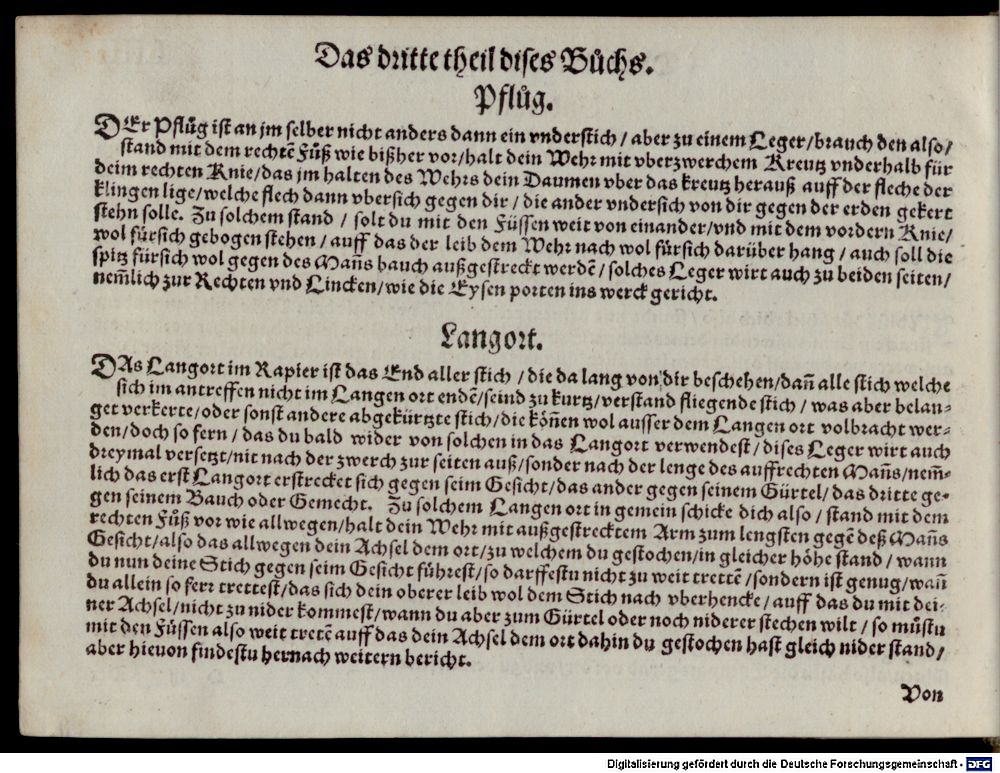 Das dritte theil dises Bůchs.
Pflůg.
DEr Pflůg ist an jm selber nicht anders dann ein vnderstich / aber zu einem Leger/brauch den also/
stand mit dem rechtẽ Fůß wie bißher vor/halt dein Wehr mit vberzwerchem Kreutz vnderhalb für
deim rechten Knie/das jm halten des Wehrs dein Daumen vber das kreutz herauß auff der fleche der
klingen lige/welche flech dann vbersich gegen dir / die ander vndersich von dir gegen der erden gekert
stehn solle. Zu solchem stand / solt du mit den Füssen weit von einander/vnd mit dem vordern Knie/
wol fürsich gebogen stehen / auff das der leib dem Wehr nach wol fürsich darüber hang / auch soll die
spitz fürsich wol gegen des Mañs bauch außgestreckt werdẽ / solches Leger wirt auch zu beiden seiten/
nem̃lich zur Rechten vnd Lincken/wie die Eysen porten ins werck gericht.
Langort.
DAs Langort im Rapier ist das End aller stich / die da lang von dir beschehen/dañ alle stich welche
sich im antreffen nicht im Langen ort endẽ/seind zu kurtz/verstand fliegende stich / was aber belan-
get verkerte/oder sonst andere abgekürtzte stich/die köñen wol ausser dem Langen ort volbracht wer-
den/doch so fern / das du bald wider von solchen in das Langort verwendest/dises Leger wirt auch
dreymal versetzt/nit nach der zwerch zur seiten auß/sonder nach der lenge des auffrechten Mañs/nem̃-
lich das erst Langort erstrecket sich gegen seim Gesicht/das ander gegen seinem Gürtel/das dritte ge-
gen seinem Bauch oder Gemecht. Zu solchem Langen ort in gemein schicke dich also / stand mit dem
rechten Fůß vor wie allwegen/halt dein Wehr mit außgestrecktem Arm zum lengsten gegẽ deß Mañs
Gesicht/also das allwegen dein Achsel dem ort/zu welchem du gestochen/in gleicher höhe stand/wann
du nun deine Stich gegen seim Gesicht führest/so darffestu nicht zu weit trettẽ/sondern ist genug/wañ
du allein so ferr trettest/das sich dein oberer leib wol dem Stich nach vberhencke/auff das du mit dei-
ner Achsel/nicht zu nider kommest/wann du aber zum Gürtel oder noch niderer stechen wilt / so můstu
mit den Füssen also weit tretẽ auff das dein Achsel dem ort dahin du gestochen hast gleich nider stand/
aber hieuon findestu hernach weitern bericht.
Von
Digitalisierung gefördert durch die Deutsche Forschungsgemeinschaft - DFG